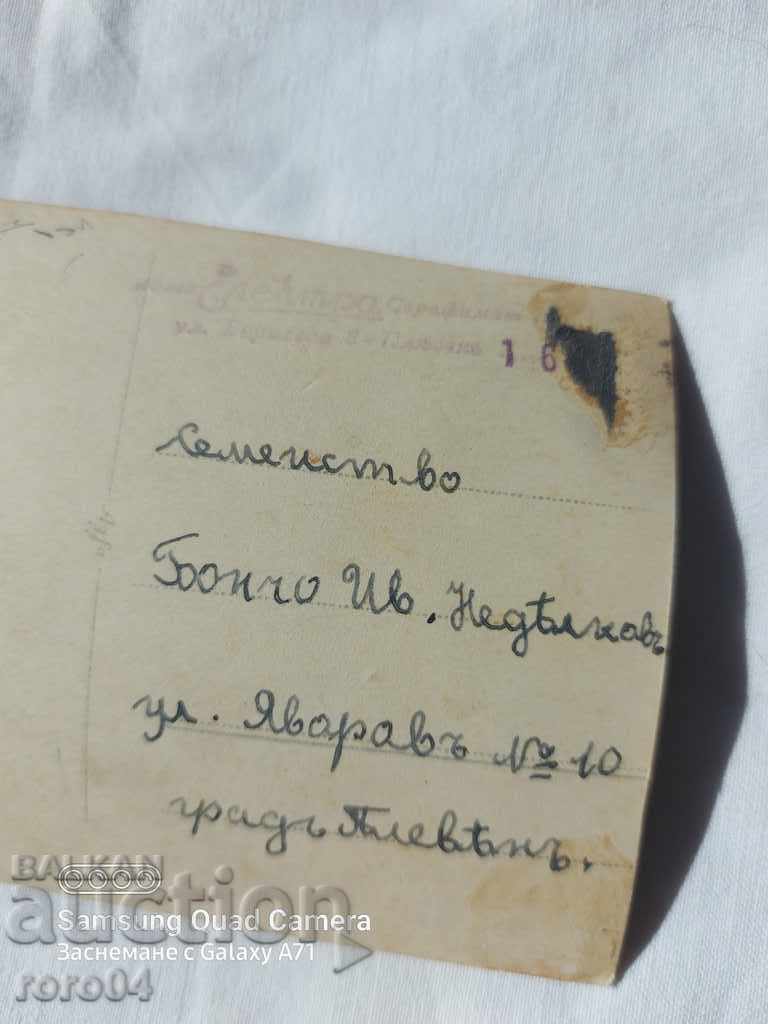 Електра Серафимов
ул. 8 - Плѣвенъ 16
Семеиство
Бончо Ив. Недѣлковъ
ул. Яваравъ № 10
градъ Плевѣнъ.
BALKAN
auction
Samsung Quad Camera
Заснемане с Galaxy A71
roro04